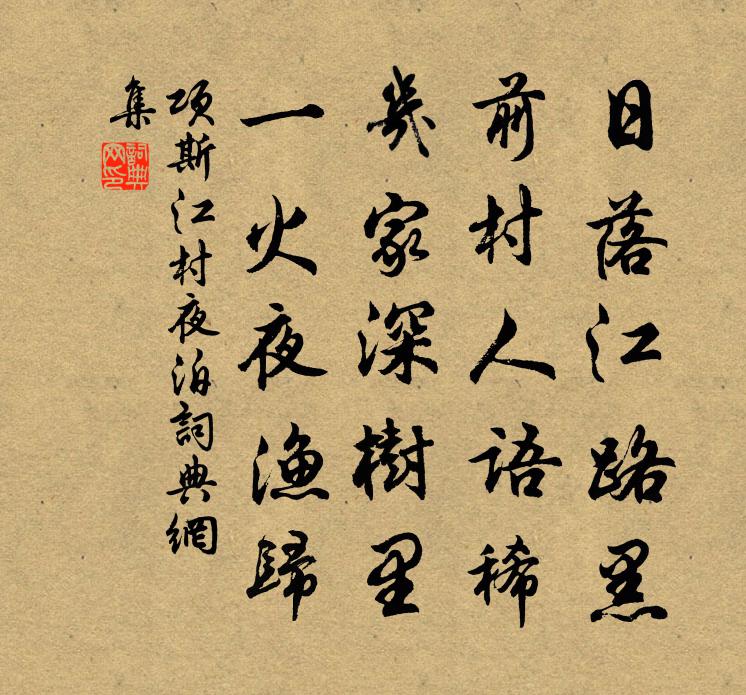 日落江路黑
前村人語稀
幾家深樹里
一火夜漁歸
項斯江村夜泊詞典網
集
詞典網印